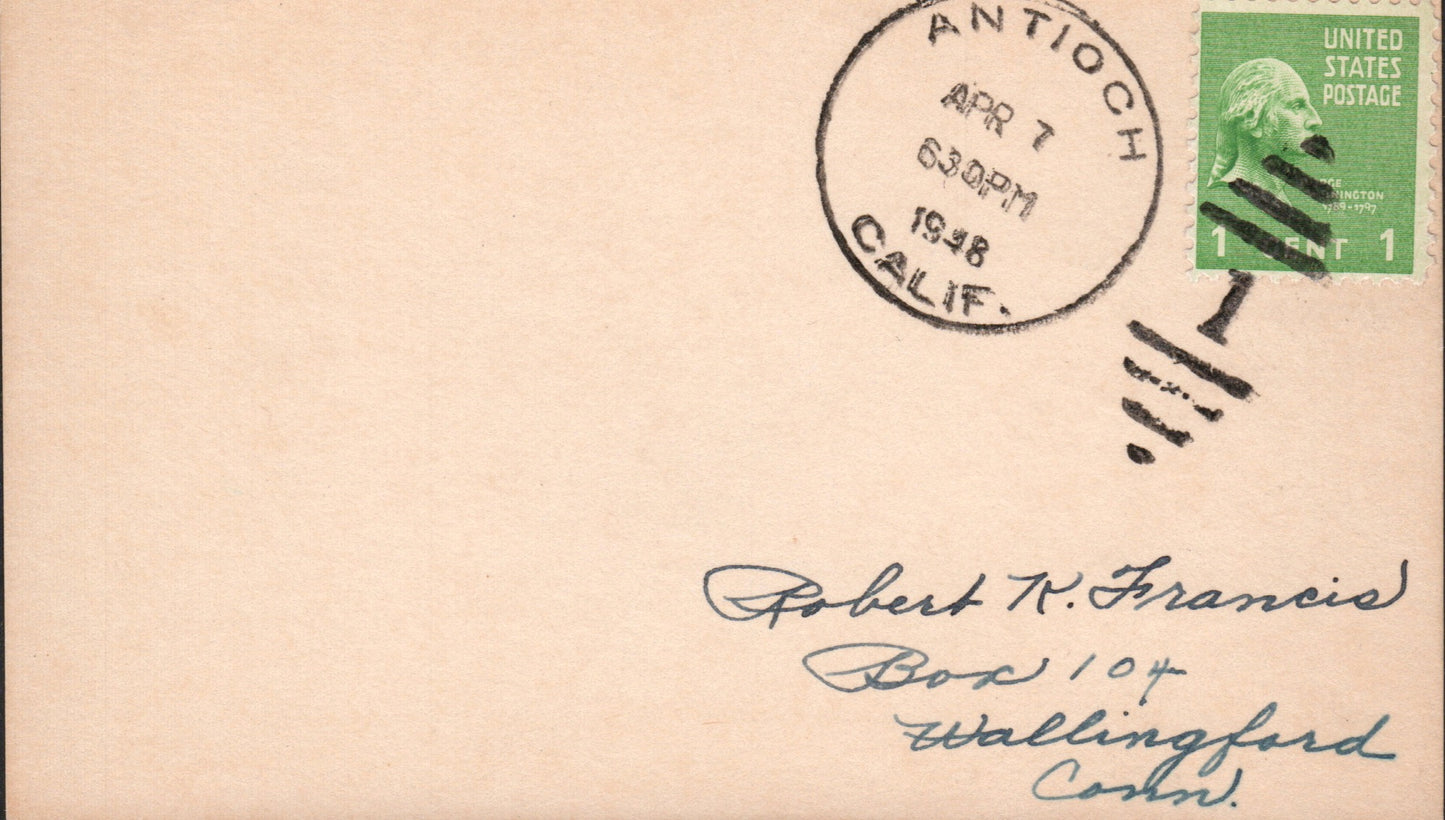 ANTIOCH
APR 7
630PM
1948
CALIF.
UNITED
STATES
POSTAGE
1789-1797
1 CENT 1
1
Robert K. Francis
Box 104
Wallingford
Conn.